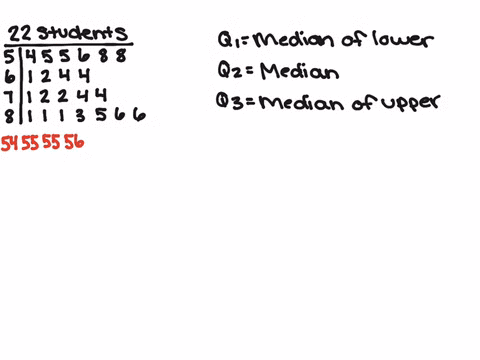 22 students
5 | 4 5 5 6 8 8
6 | 1 2 4 4
7 | 1 2 2 4 4
8 | 1 1 1 3 5 6 6
54 55 55 56
Q1=Median of lower
Q2=Median
Q3=Median of upper